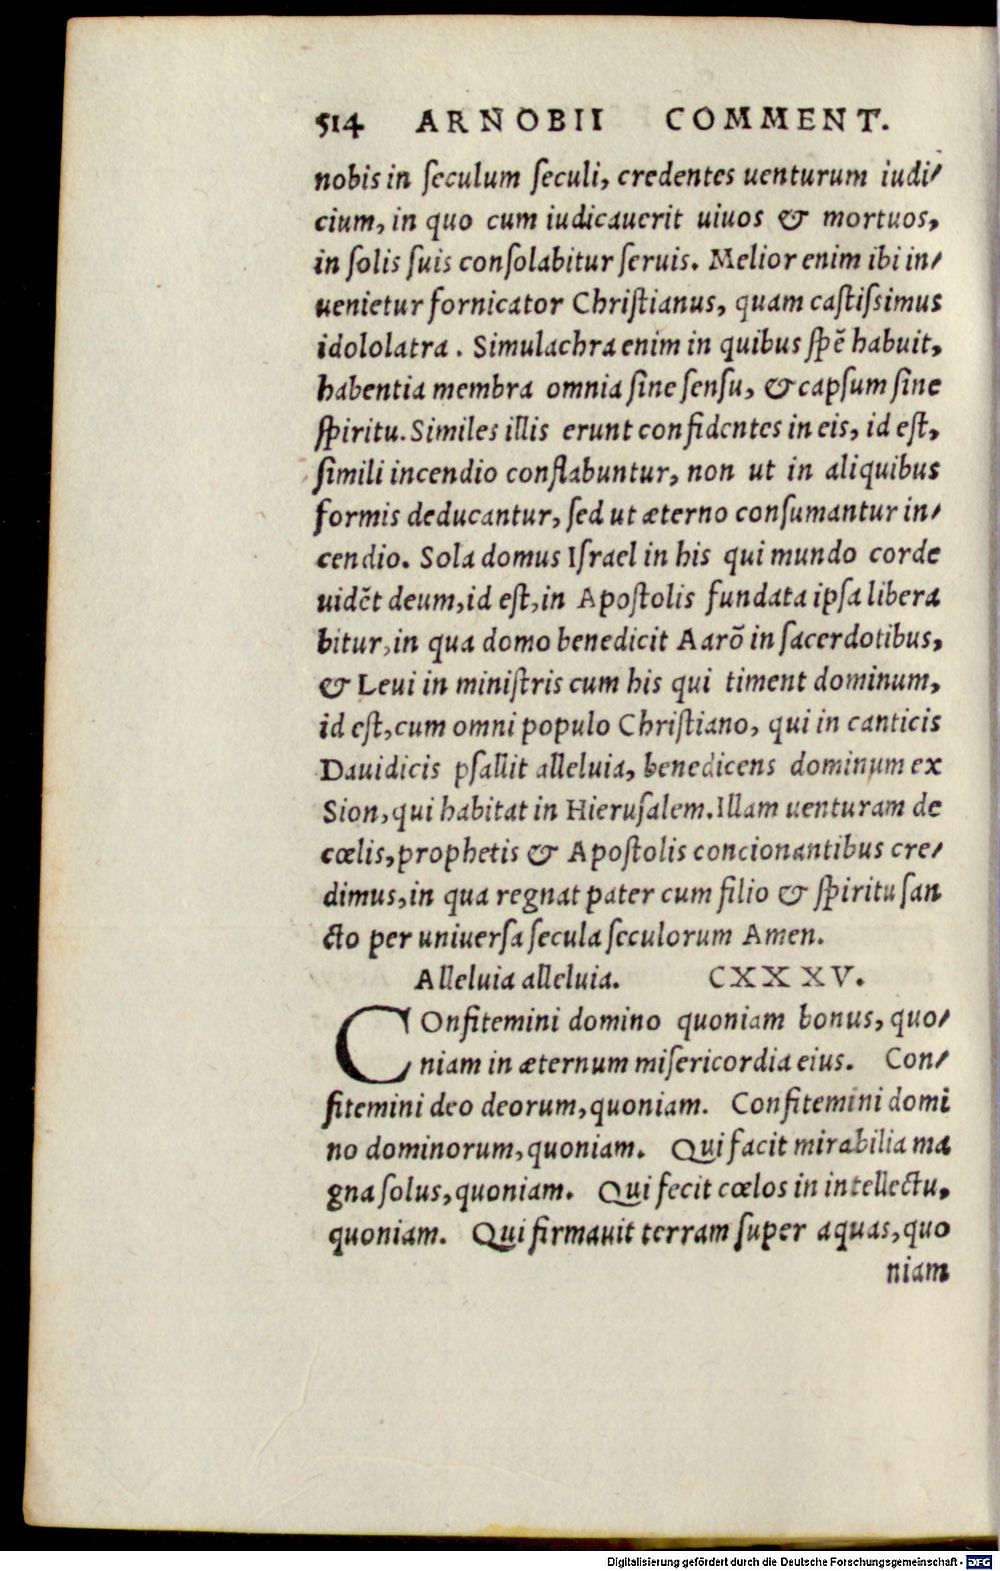 514 ARNOBII COMMENT.
nobis in ſeculum ſeculi, credentes uenturum iudi/
cium, in quo cum iudicauerit uiuos & mortuos,
in ſolis ſuis conſolabitur ſeruis. Melior enim ibi in/
uenietur fornicator Chriſtianus, quam caſtiſsimus
idololatra. Simulachra enim in quibus ſpē habuit,
habentia membra omnia ſine ſenſu, & capſum ſine
ſpiritu. Similes illis erunt confidentes in eis, id eſt,
ſimili incendio conflabuntur, non ut in aliquibus
formis deducantur, ſed ut æterno conſumantur in/
cendio. Sola domus Iſrael in his qui mundo corde
uidēt deum, id eſt, in Apoſtolis fundata ipſa libera
bitur, in qua domo benedicit Aarō in ſacerdotibus,
& Leui in miniſtris cum his qui timent dominum,
id eſt, cum omni populo Chriſtiano, qui in canticis
Dauidicis pſallit alleluia, benedicens dominum ex
Sion, qui habitat in Hieruſalem. Illam uenturam de
cœlis, prophetis & Apoſtolis concionantibus cre/
dimus, in qua regnat pater cum filio & ſpiritu ſan
cto per uniuerſa ſecula ſeculorum Amen.
Alleluia alleluia. CXXXV.
COnfitemini domino quoniam bonus, quo/
niam in æternum miſericordia eius. Con/
fitemini deo deorum, quoniam. Confitemini domi
no dominorum, quoniam. Qui facit mirabilia ma
gna ſolus, quoniam. Qui fecit cœlos in intellectu,
quoniam. Qui firmauit terram ſuper aquas, quo
niam
Digitalisierung gefördert durch die Deutsche Forschungsgemeinschaft - DFG